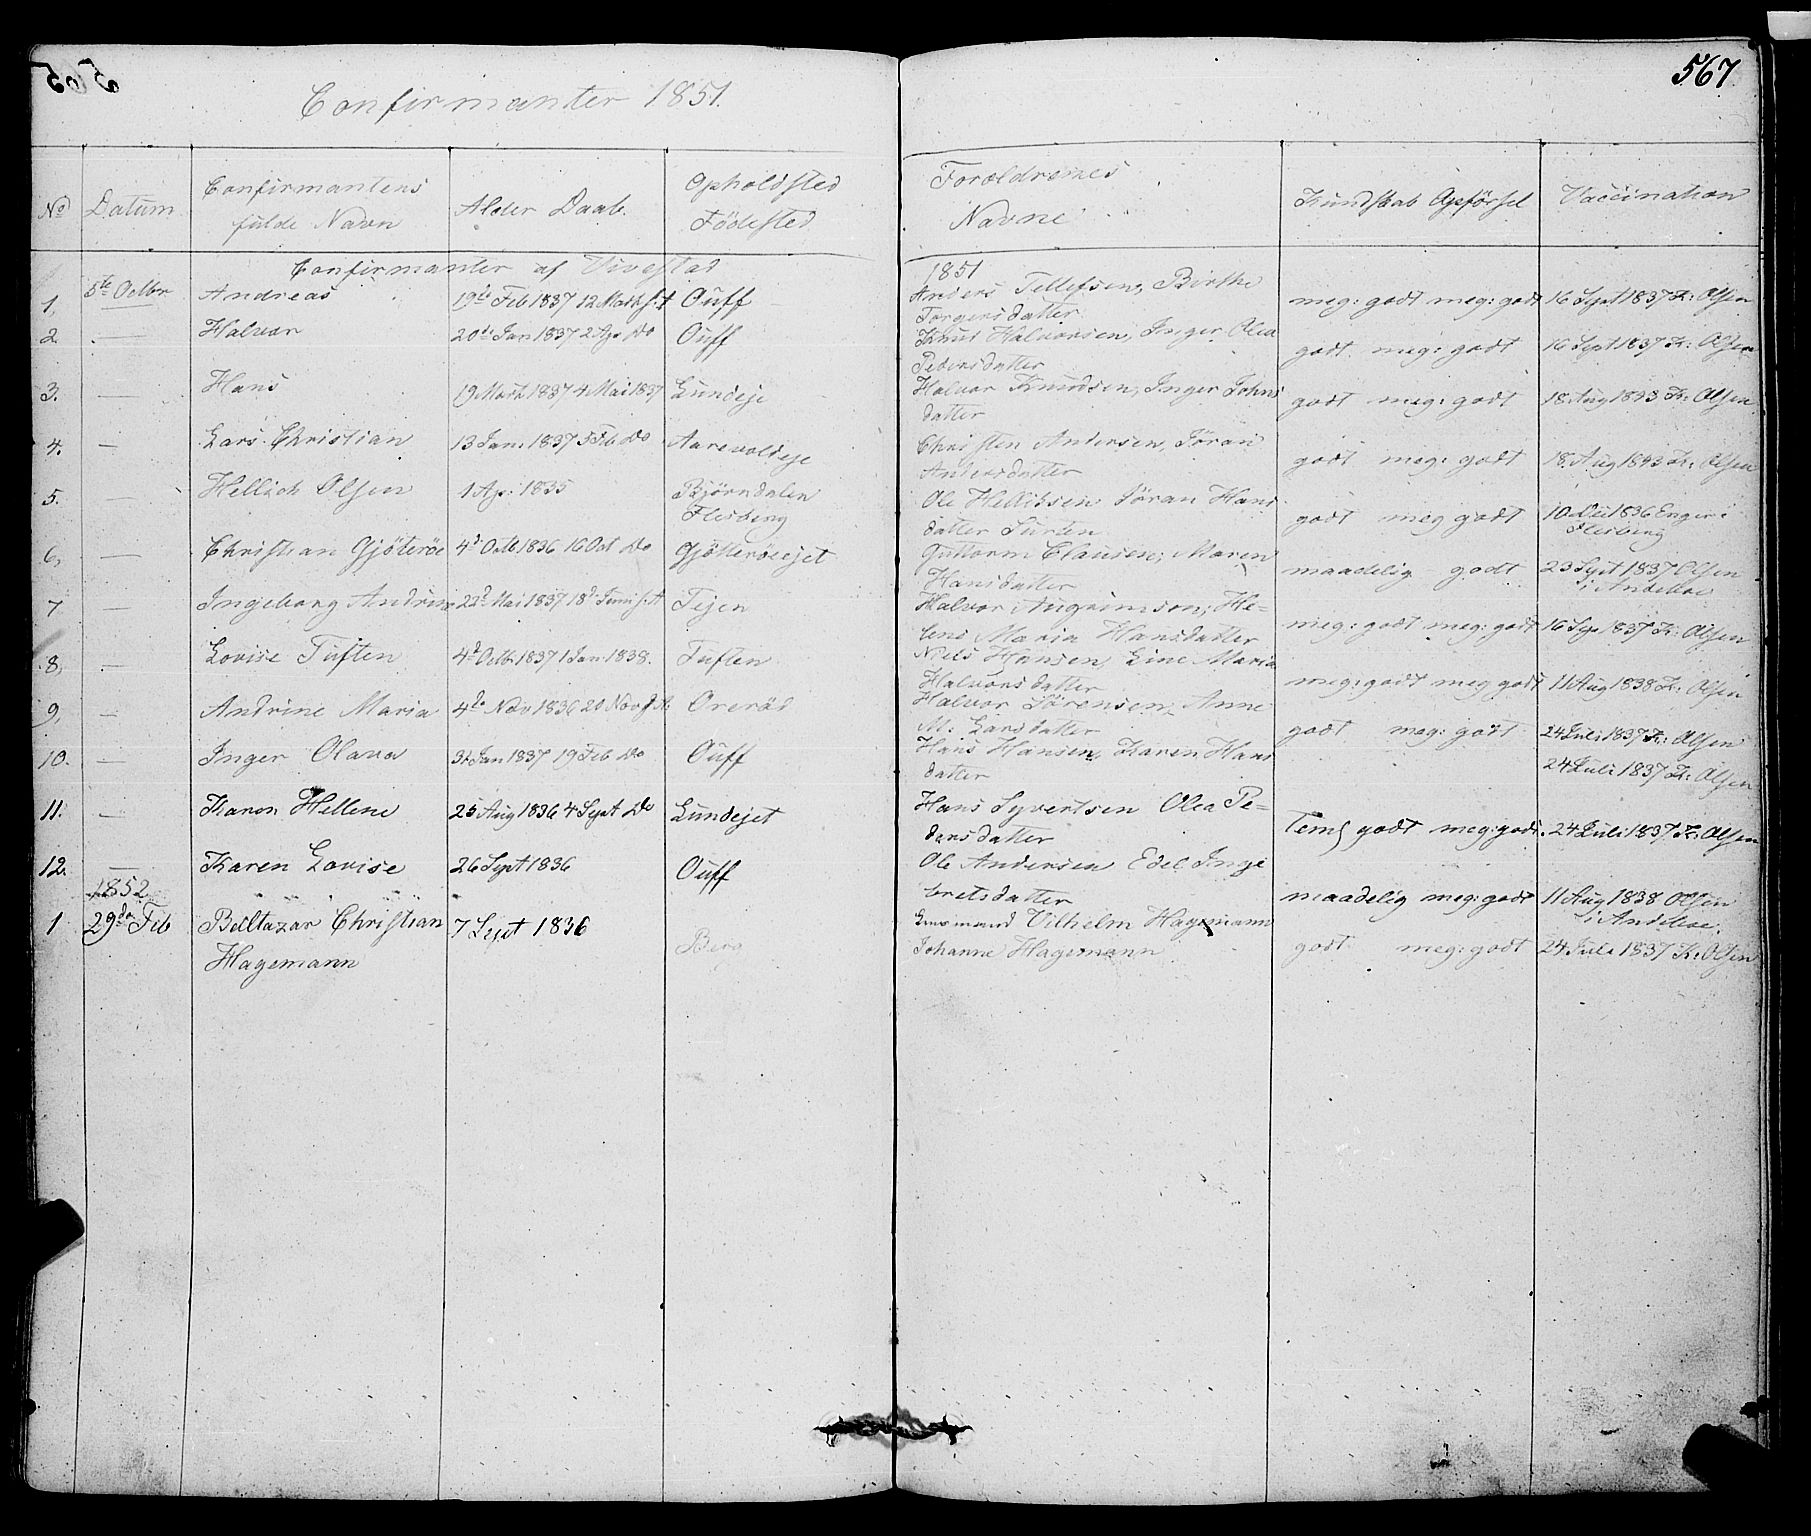 Confirmanter 1851.
567
No Datum Confirmantens fulde Navn Alder Daab. Opholdsted Födested Forældrenes Navne Kundskab Opförsel Vaccination
Confirmanter af Vivestad
1851
1, 5te Octbr Andreas 19de Feb 1837 12 Marth s:A Ouff Anders Tellefsen, Birthe meg: godt meg: godt 16 Sept 1837 K: Olsen
Torgersdatter
2. — Halvor 20de Jan 1837 2 Apr Do Ouff Knud Halvorsen, Inger Olea godt meg: godt 16 Sept 1837 K: Olsen
Pedersdatter
3. — Hans 19 Mart 1837 4 Mai 1837 Lundeje Halvor Knudsen, Inger Johns godt meg: godt 18 Aug 1843 K: Olsen
datter
4. — Lars Christian 13 Jan: 1837 5 Feb Do Aarevoldeje Christen Andersen, Jöran godt meg: godt 18 Aug 1843 K: Olsen
Andersdatter
5. — Hellich Olsen 1 Apr: 1835 Björndalen Ole Helliksen Jöran Hans godt meg godt 10 1836 Enger i
Flesberg datter Flesberg
6, — Christian Gjöteröe 4d Octb 1836 16 Oct Do Gjötteröeejet Guttorm Clausen, Maren maadelig godt 23 Sept 1837 Olsen
Hansdatter i Andeboe
7 — Ingeborg Andrine 22d Mai 1837 18d Juni s:A Tejen Halvor Angrimson, He- meg: godt meg: godt 16 Sep 1837 K: Olsen
lene Maria Hansdatter
8, — Lovise Tuften 4d Octbr 1837 1 Jan 1838. Tuften Niels Hansen, Line Maria meg: godt meg godt 11 Aug 1838 K: Olsen
Halvorsdatter
9, — Andrine Maria 4de Nov 1836 20 Nov s:A. Oreröd Halvor Sörensen, Anne godt meg: godt 24 Juli 1837 K: Olsen
M. Larsdatter
10. — Inger Olava 31 Jan 1837 19 Feb Do Ouff Hans Hansen, Karen Hans 24 Juli 1837 K: Olsen
datter
11. — Karen Hellene 25 Aug 1836 4 Sept Do Lundejet Hans Syvertsen Olea Pe- Teml godt meg: godt. 24 Juli 1837 K: Olsen
dersdatter
12. — Karen Lovise 26 Sept 1836 Ouff Ole Andersen Edel Inge maadelig meg: godt 11 Aug 1838 Olsen
bretsdatter i Andeboe.
1852
1 29de Feb Belltazar Christian 7 Sept 1836 Berg Vilhelm Hagemann godt meg: godt 24 Juli 1837 K: Olsen
Hagemann Johanne Hagemann